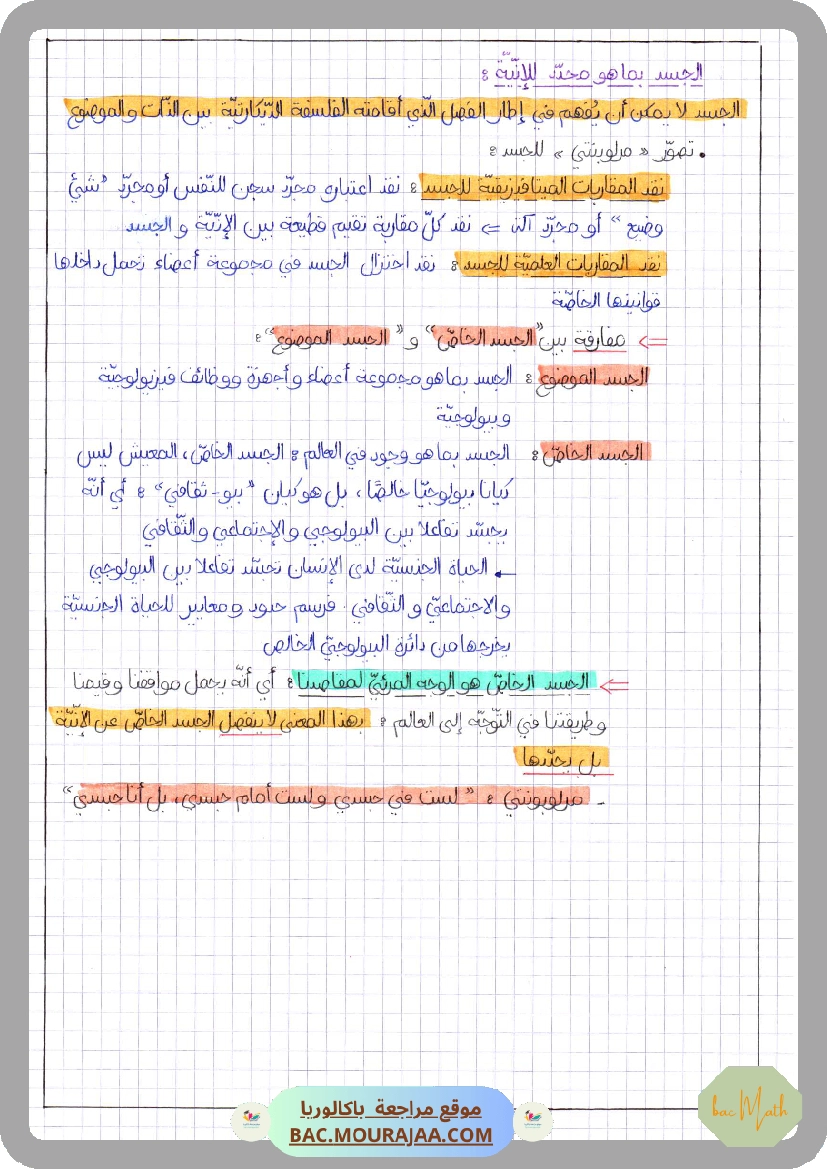 الجسد بما هو محدّد للإنّيّة :
الجسد لا يمكن أن يُفهم في إطار الفصل الّذي أقامته الفلسفة الدّيكارتيّة بين الذّات والموضوع
• تصوّر « مرلوبنتي » للجسد :
نقد المقاربات الميتافيزيقيّة للجسد : نقد اعتباره مجرّد سجن للنّفس أو مجرّد "شيء
وضيع" أو مجرّد آلة => نقد كلّ مقاربة تقيم قطيعة بين الإنّيّة و الجسد
نقد المقاربات العلميّة للجسد : نقد اختزال الجسد في مجموعة أعضاء تحمل داخلها
قوانينها الخاصّة
=> مفارقة بين "الجسد الخاصّ" و "الجسد الموضوع" :
الجسد الموضوع : الجسد بما هو مجموعة أعضاء و أجهزة ووظائف فيزيولوجيّة
وبيولوجيّة
الجسد الخاصّ : الجسد بما هو وجود في العالم : الجسد الخاصّ، المعيش ليس
كيانا بيولوجيّا خالصًا، بل هو كيان "بيو-ثقافي" : أي أنّه
يجسّد تفاعلا بين البيولوجي و الإجتماعي والثّقافي
← الحياة الجنسيّة لدى الإنسان تجسّد تفاعلا بين البيولوجي
والاجتماعيّ و الثّقافي. فرسم حدود و معايير للحياة الجنسيّة
يخرجها من دائرة البيولوجيّ الخالص
=> الجسد الخاصّ هو الوجه المرئيّ لمقاصدنا : أي أنّه يحمل مواقفنا و قيمنا
و طريقتنا في التّوجّه إلى العالم : بهذا المعنى لا ينفصل الجسد الخاصّ عن الإنّيّة
بل يحدّدها
- مرلوبونتي : "لست في جسدي و لست أمام جسدي، بل أنا جسدي"
موقع مراجعة باكالوريا
BAC.MOURAJAA.COM
bac Math